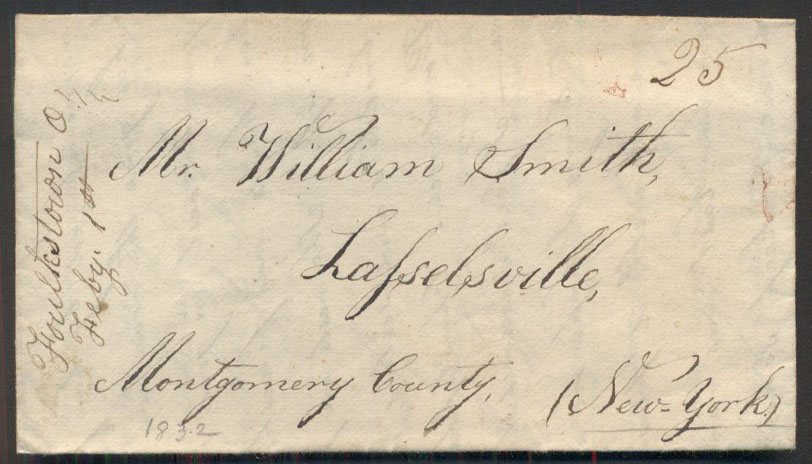 25
Foulkstown O.
Feby. 1st
Mr. William Smith,
Lasselsville,
Montgomery County,
(New-York.)
1832